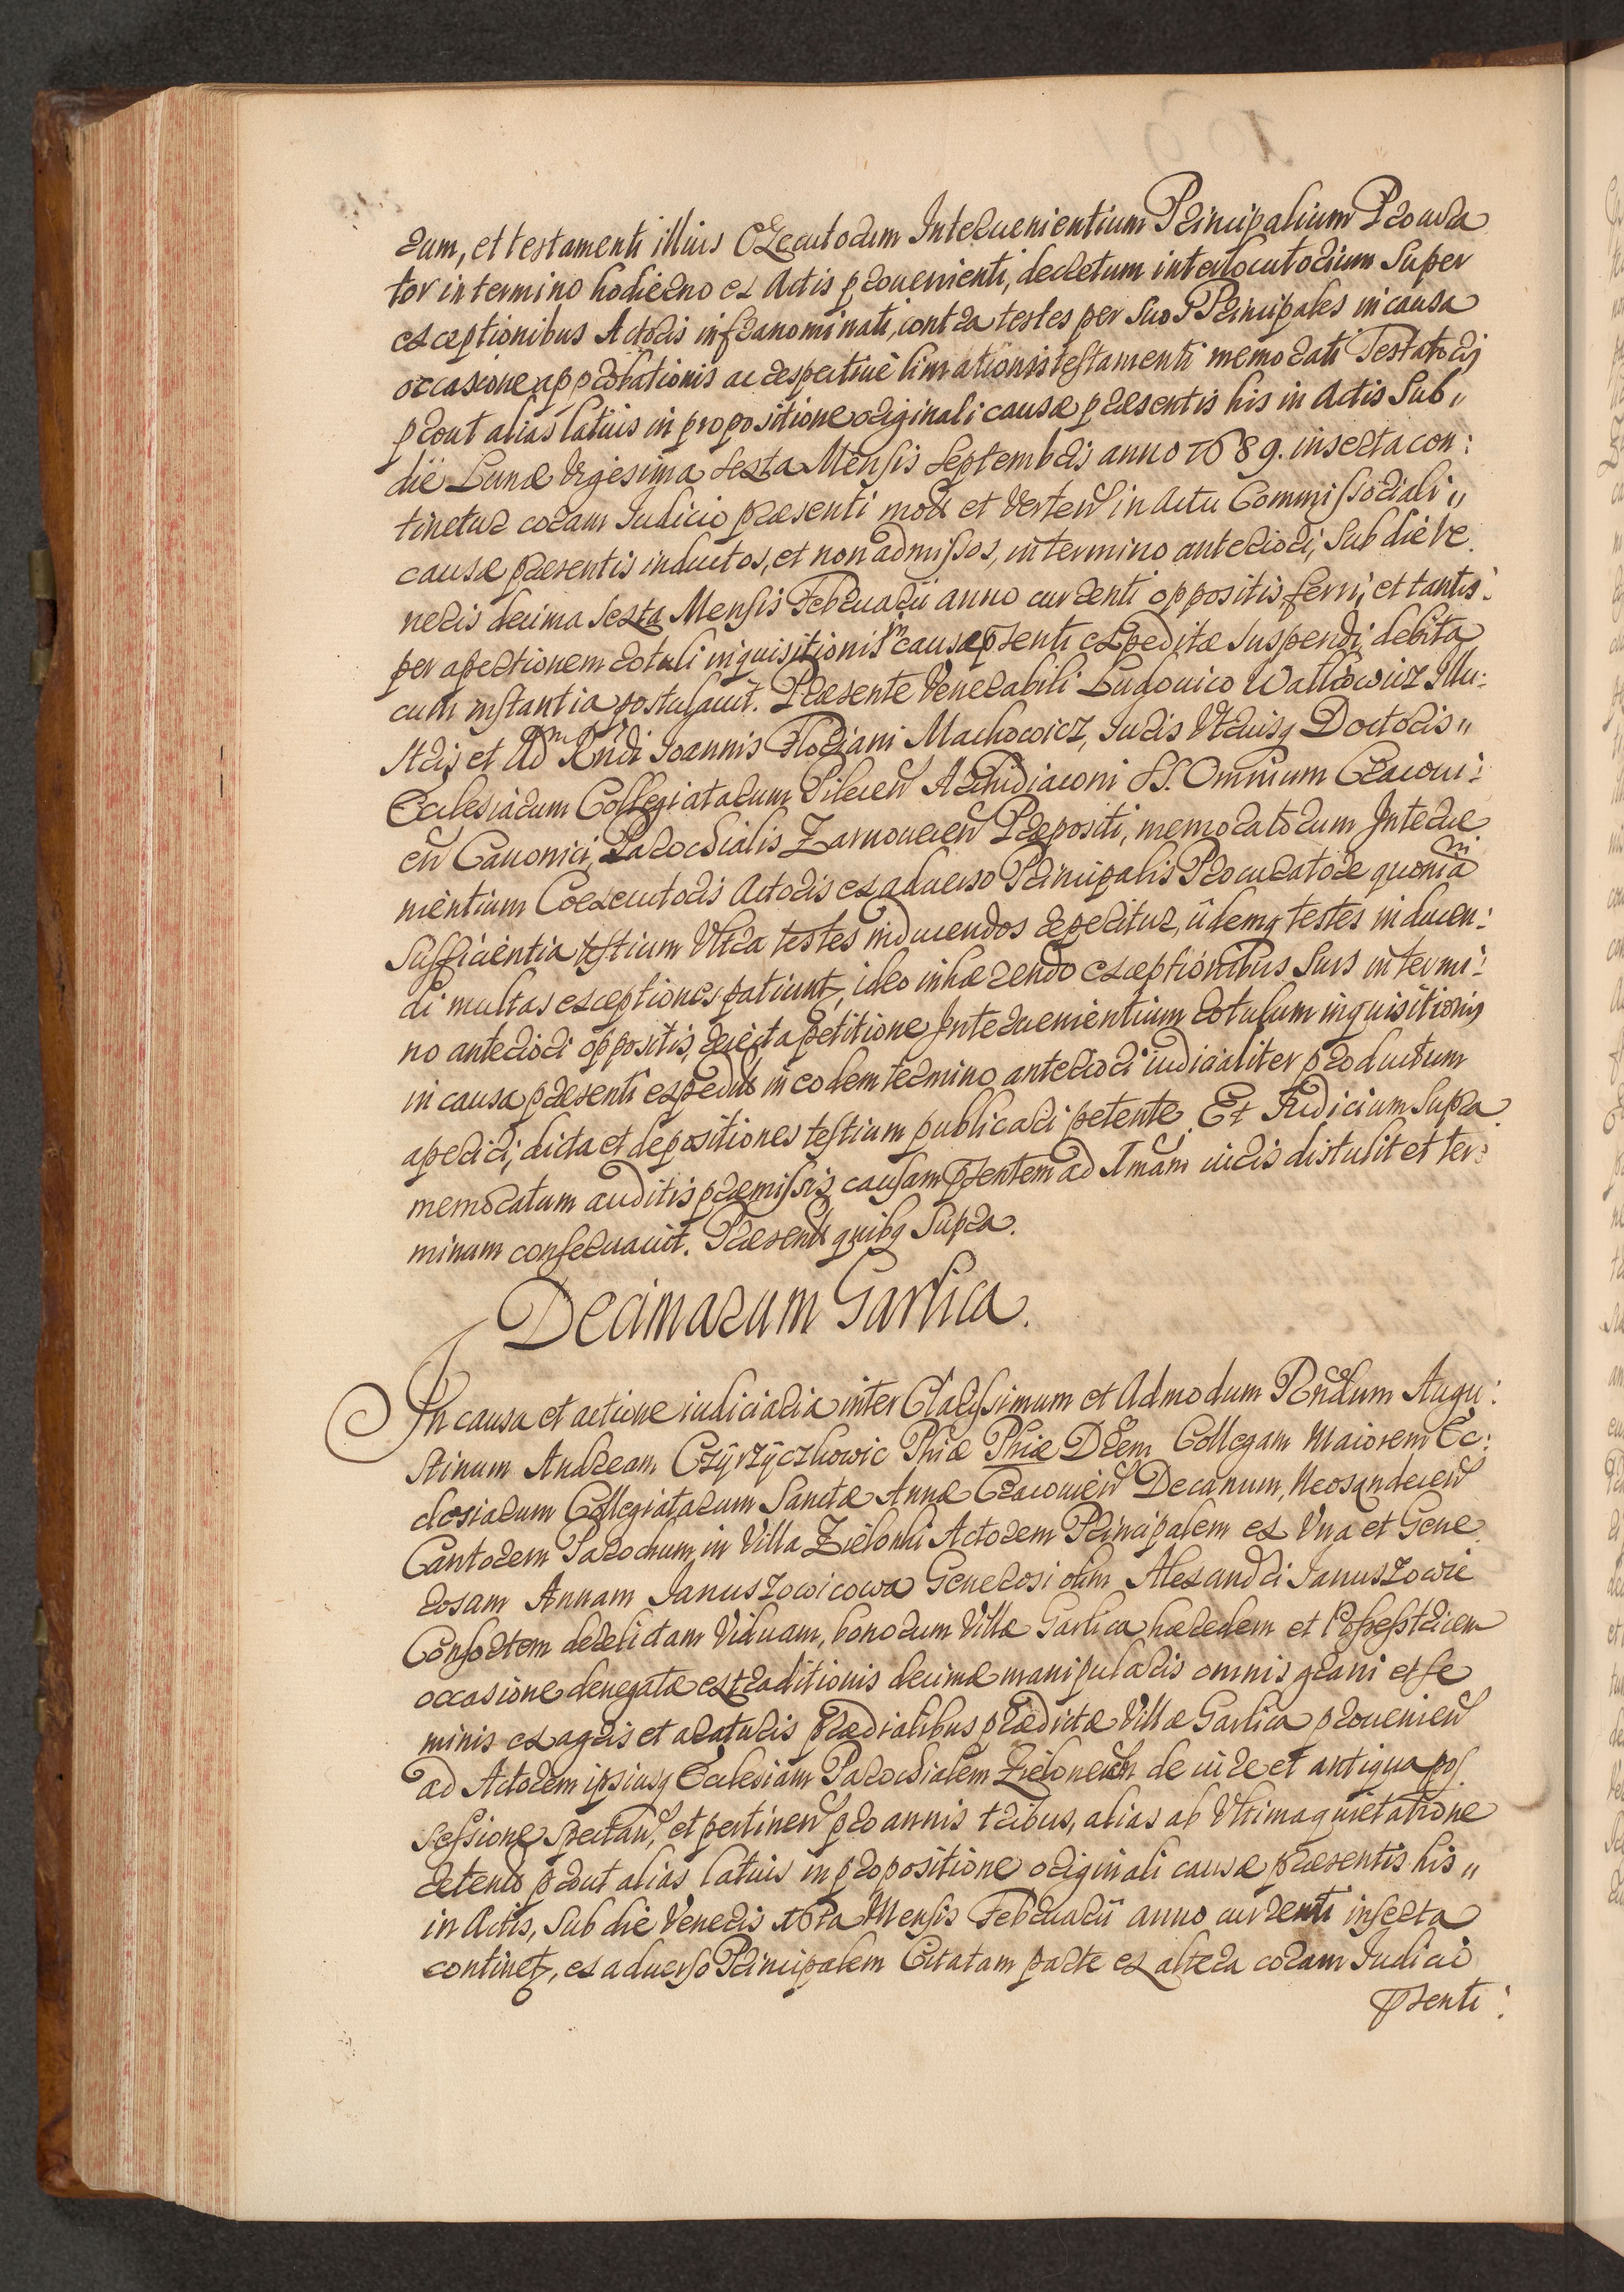 rum, et testamenti illius Executorum Interuenientium Principalium Procura
tor in termino hodierno ex Actis prouenienti, decretum interlocutorium Super
exceptionibus Actoris infranominati, contra testes per Suos Principales in causa
occasione approbationis ac respectiue limationis testamenti memorati Testatoris
prout alias latius in propositione originali causæ præsentis his in Actis Sub„
die Lunæ Vigesima Sexta Mensis Septembris anno 1689. inserta con:
tinetur coram Judicio præsenti mota et Verten in actu Commissoriali„
causæ præsentis inductos, et non admissos, in termino anteriori, Sub die Ve
neris decima Sexta Mensis Februarii anno currenti oppositis, ferri, et tantis:
per apertionem rotuli inquisitionis in causa pnsenti expeditæ suspendi, debita
cum instantia postulauit. Præsente Venerabili Ludouico Walkowicz Illu:
stris et Adm Rndi Joannis Floriani Machowicz, Juris Vtriusq Doctoris„
Ecclesiarum Collegiatarum Pilecen Archidiaconi SS. Omnium Cracoui:
en Canonici, Parochialis Zarnouecen Præpositi, memoratorum Interue
nientium Coexecutoris Actoris ex aduerso Principalis Procuratore quoniam
Sufficientia testium Vltra testes inducendos reperitur, iidemq testes inducen:
di multas exceptiones patiunt, ideo inhærendo exceptionibus Suis in termi:
no anteriori oppositis, reiecta petitione Interuenientium rotulum inquisitionis
in causa præsenti expedit in eodem termino anteriori iudicialiter productum
aperiri, dicta et depositiones testium publicari petente. Et Judicium Supra
memoratum auditis præmissis causam pnsentem ad Imam iuris distulit et ter:
minum conseruauit. Præsent quibq Supra.
Decimarum Garlica.
In causa et actione iudiciaria inter Clarissimum et Admodum Rndum Augu:
stinum Andream Czyrzyczkowic Phiæ Phiæ Drem, Collegam Maiorem Ec:
clesiarum Collegiatarum Sanctæ Annæ Cracouien Decanum, Neosandecen
Cantorem Parochum, in Villa Zielonki Actorem Principalem ex Vna et Gene
rosam Annam Januszowicowa Generosi olim Alexandri Januszowic
Consortem derelictam Viduam, bonorum Villæ Garlica hæredem et Possestricem
occasione denegatæ extraditionis decimæ manipularis omnis grani et se
minis ex agris et araturis prædialibus prædictæ Villæ Garlica prouenien
ad Actorem ipsiusq Ecclesiam Parochialem Zielonecen de iure et antiqua pos
sessione spectan, et pertinen pro annis tribus, alias ab Vltima quietatione
retent prout alias latius in propositione originali causæ præsentis his„
in Actis, Sub die Veneris Mensis Februarii anno currenti inserta
continet, ex aduerso Principalem Citatam parte ex altera coram Judicio
pnsenti: